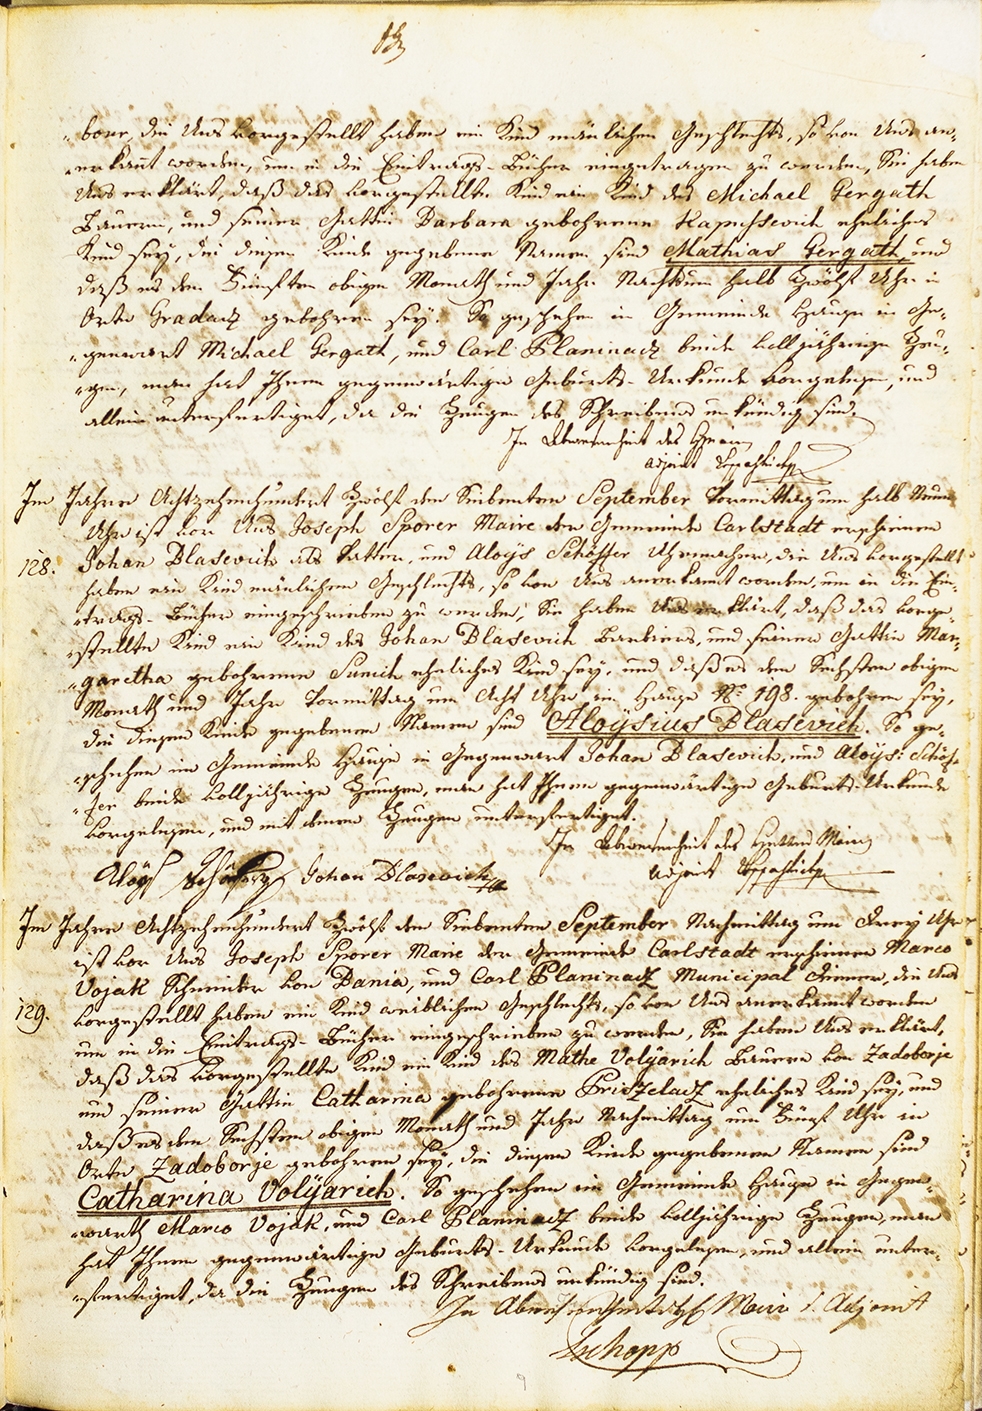 „bour, die Uns vorgestellt haben ein Kind mänlichen Geschlechts, so von Uns an„
„erkannt worden, um in die Eintrags-Bücher eingetragen zu werden, Sie haben
Uns erklärt, daß das vorgestellte Kind ein Kind des Michael Gergath
Bauern, und seiner Gattin Barbara gebohrene Kapussevich eheliches
Kind sey, die diesem Kinde gegebene Namen sind Mathias Gergath, und
daß es den Fünften obigen Monath und Jahr Nachts um halb Zwölf Uhr in
Orte Gradacz gebohren sey. So geschehen in Gemeinde Hause in Ge„
„genwart Michael Gergath, und Carl Planinacz beide volljährige Zeu„
„gen, man hat Ihnen gegenwärtige Geburts-Urkunde vorgelesen, und
allein unterfertiget, da die Zeugen des Schreibens unkündig sind.
In Abwesenheit des
adjoint
Im Jahre Achtzehenhundert Zwölf den Siebenten September Vormittag um halb Neun
Uhr ist vor Uns Joseph Sporer Maire der Gemeinde Carlstadt erschienen
128. Johan Blasevich als Vatter, und Aloÿs Schöffer Uhrmacher, die Uns vorgestellt
haben ein Kind mänlichen Geschlechts, so von Uns anerkannt worden, um in die Ein„
„trags-Bücher eingeschrieben zu werden, Sie haben Uns erklärt, daß das vorge„
„stellte Kind ein Kind des Johan Blasevich Barbiers, und seiner Gattin Mar„
„garetha gebohrene Sunich eheliches Kind sey, und daß es den Sechsten obigen
Monath und Jahr Vormittag um Acht Uhr im Hause No. 198. gebohren sey,
die diesem Kinde gegebenen Namen sind Aloÿsius Blasevich. So ge„
„schehen im Gemeinde Hause in Gegenwart Johan Blasevich, und Aloÿs: Schöf„
„fer beide volljährige Zeugen, man hat Ihnen gegenwärtige Geburts-Urkunde
vorgelesen, und mit denen Zeugen unterfertiget.
In Abwesenheit des Herrn Maire
Aloÿs Schöffer Johan Blasevich adjoint
Im Jahre Achtzehenhundert Zwölf den Siebenten September Nachmittag um Dreÿ Uhr
ist vor Uns Joseph Sporer Maire der Gemeinde Carlstadt erschienen Marco
Vojak Schneider von Bania, und Carl Planinacz Municipal Diener, die Uns
129. vorgestellt haben ein Kind weiblichen Geschlechts, so von Uns anerkannt worden
um in die Eintrags-Bücher eingeschrieben zu werden, Sie haben Uns erklärt,
daß das vorgestellte Kind ein Kind des Mathe Volÿarich Bauern von Zadoborje
und seiner Gattin Catharina gebohrene Pridzelacz eheliches Kind sey, und
daß es den Sechsten obigen Monath und Jahr Nachmittag um Fünf Uhr in
Orte Zadoborje gebohren sey, die diesem Kinde gegebenen Namen sind
Catharina Volÿarich. So geschehen im Gemeinde Hause in Gegen„
„warth Marco Vojak, und Carl Planinacz beide volljährige Zeugen, man
hat Ihnen gegenwärtige Geburts-Urkunde vorgelesen, und allein unter„
„fertiget, da die Zeugen des Schreibens unkündig sind.
In Abwesenheit Maire Adjoint
Tschopp